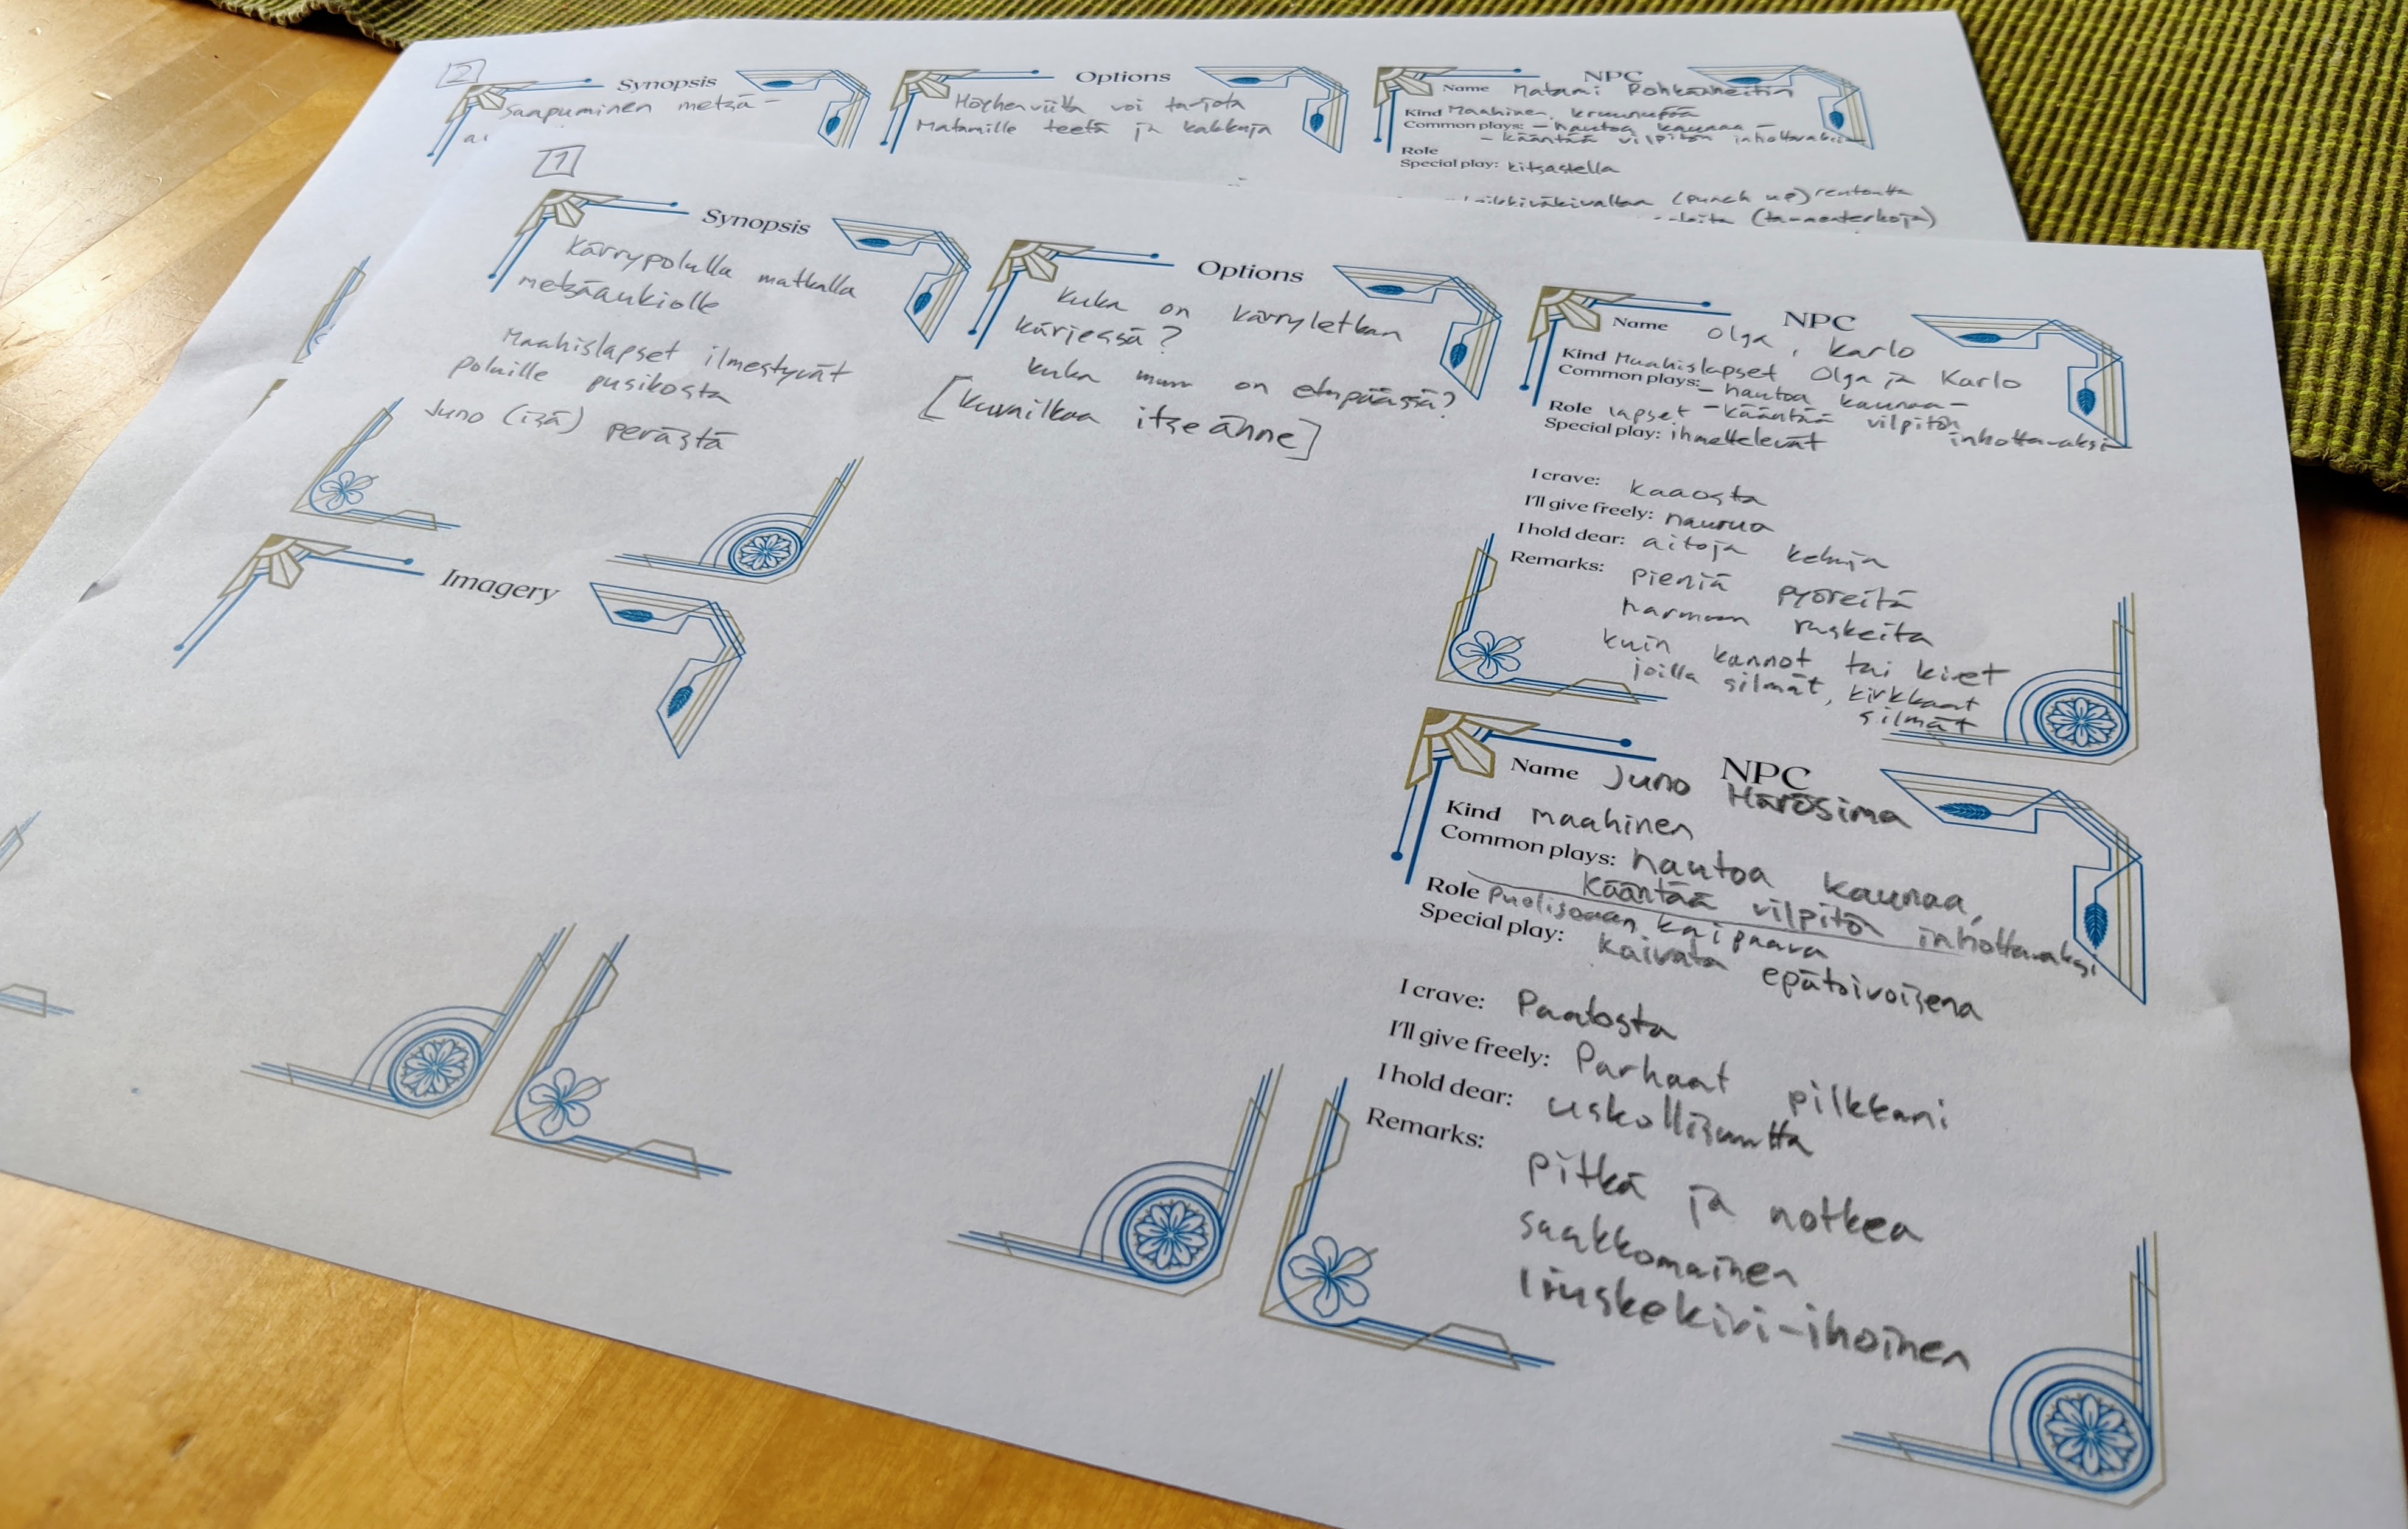 2
Synopsis
Saapuminen metsä-
Options
voi tarjota
Matamille teetä ja kakkuja
NPC
Name Matami
Kind Maahinen,
Common plays: - hautoa kaunaa -
- kääntää vilpitön inhottavaksi
Role
Special play: kitsastella
(punch up)
1
Synopsis
Kärrypolulla matkalla
metsäaukiolle
Maahislapset ilmestyvät
poluille pusikosta
Juno (isä) perästä
Imagery
Options
Kuka on kärryletkan
kärjessä?
Kuka muu on etupäässä?
[Kuvailkaa itseänne]
NPC
Name Olga, Karlo
Kind Maahislapset Olga ja Karlo
Common plays: - hautoa kaunaa -
Role lapset - kääntää vilpitön
inhottavaksi
Special play: ihmettelevät
I crave: kaaosta
I'll give freely: naurua
I hold dear: aitoja kehuja
Remarks: pieniä pyöreitä
harmaan ruskeita
kuin kannot tai kivet
joilla silmät, kirkkaat
silmät
NPC
Name Juno Härösima
Kind maahinen
Common plays: hautoa kaunaa,
kääntää vilpitön inhottavaksi
Role puolisoaan kaipaava
Special play: kaivata epätoivoisena
I crave: Paahtosta
I'll give freely: Parhaat pilkkani
I hold dear: uskollisuutta
Remarks:
pitkä ja notkea
saukkomainen
liuskekivi-ihoinen